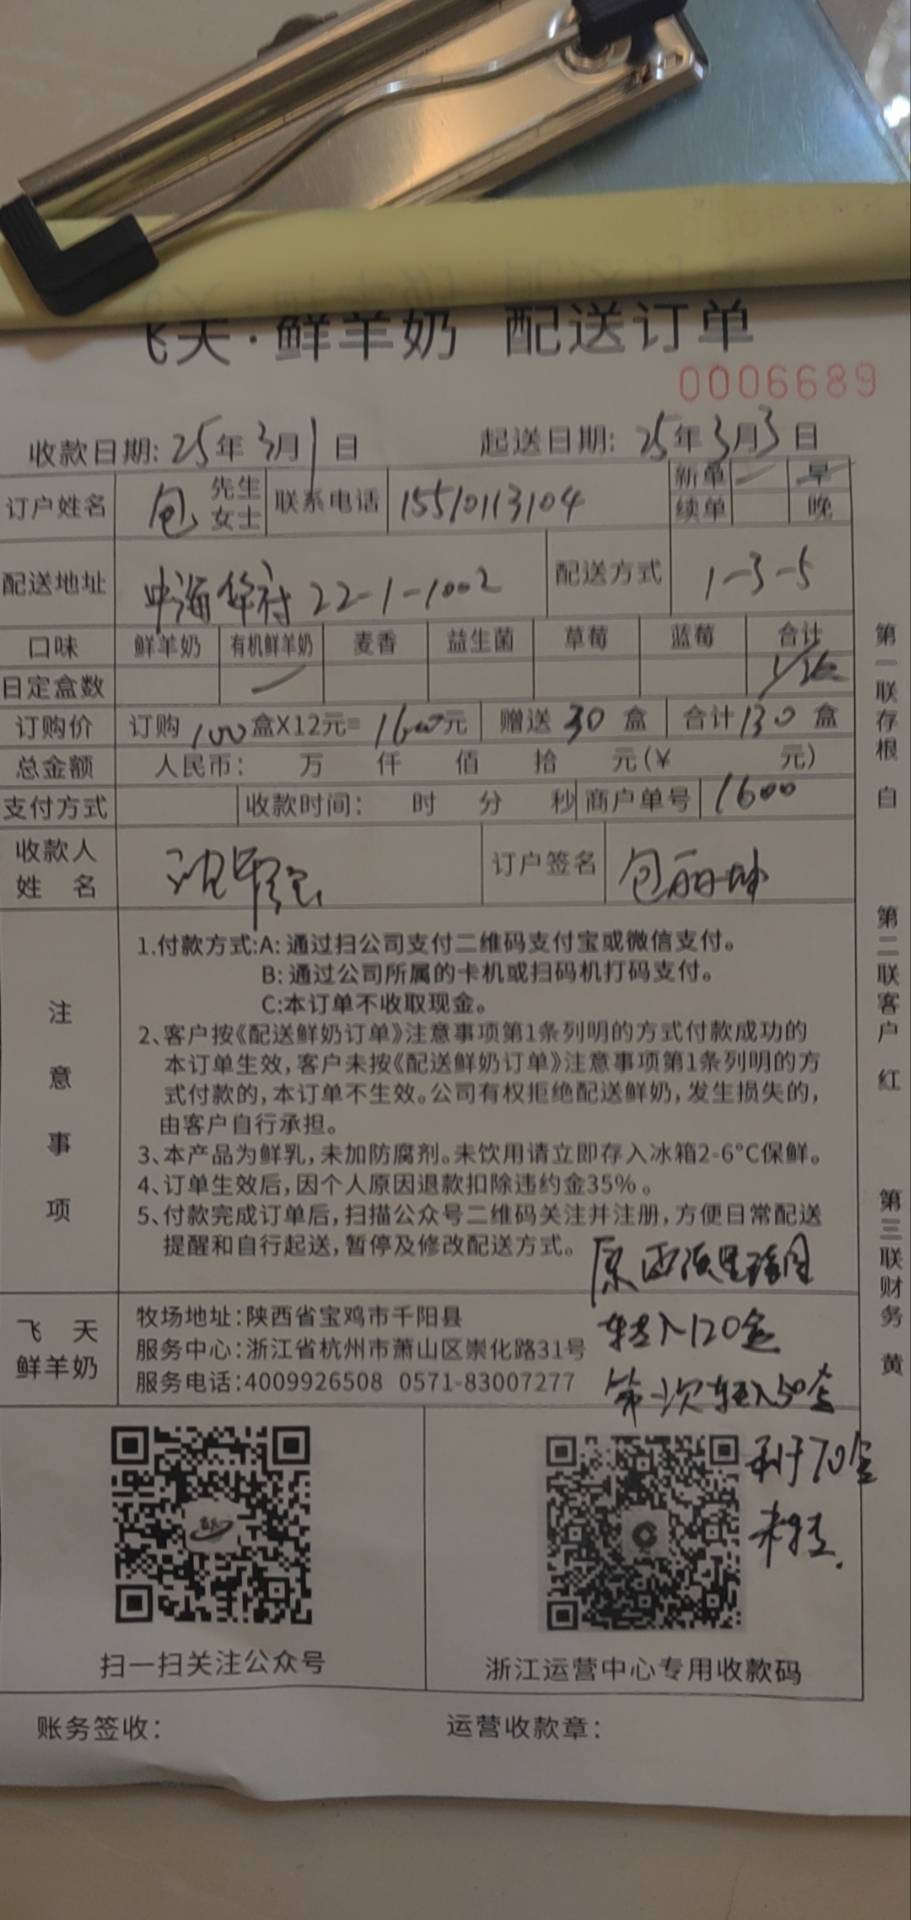 飞天·鲜羊奶 配送订单
0006689
收款日期: 25年3月1日 起送日期: 25年3月3日
订户姓名 包 先生 女士 联系电话 15510113104 新单 早
续单 晚
配送地址 中海华府22-1-1002 配送方式 1-3-5
口味 鲜羊奶 有机鲜羊奶 麦香 益生菌 草莓 蓝莓 合计
日定盒数 1/
订购价 订购100盒X12元=1600元 赠送30盒 合计130盒
总金额 人民币: 万 仟 佰 拾 元(¥ 元)
支付方式 收款时间: 时 分 秒 商户单号 1600
收款人
姓名 订户签名 包丽坤
注意事项
1.付款方式:A: 通过扫公司支付二维码支付宝或微信支付。
B: 通过公司所属的卡机或扫码机打码支付。
C:本订单不收取现金。
2、客户按《配送鲜奶订单》注意事项第1条列明的方式付款成功的
本订单生效,客户未按《配送鲜奶订单》注意事项第1条列明的方
式付款的,本订单不生效。公司有权拒绝配送鲜奶,发生损失的,
由客户自行承担。
3、本产品为鲜乳,未加防腐剂。未饮用请立即存入冰箱2-6°C保鲜。
4、订单生效后,因个人原因退款扣除违约金35%。
5、付款完成订单后,扫描公众号二维码关注并注册,方便日常配送
提醒和自行起送,暂停及修改配送方式。
原西
转入120盒
第一次转入50盒
剩于70盒
未转.
飞天
鲜羊奶
牧场地址:陕西省宝鸡市千阳县
服务中心:浙江省杭州市萧山区崇化路31号
服务电话:4009926508 0571-83007277
扫一扫关注公众号
浙江运营中心专用收款码
账务签收: 运营收款章:
第一联存根 白
第二联客户 红
第三联财务 黄